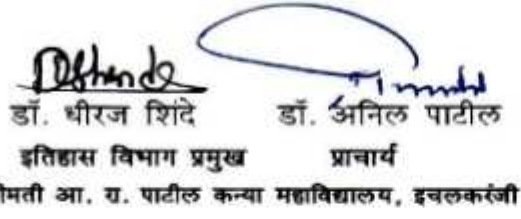 डॉ. धीरज शिंदे डॉ. अनिल पाटील
इतिहास विभाग प्रमुख प्राचार्य
मती आ. रा. पाटील कन्या महाविद्यालय, इचलकरंजी